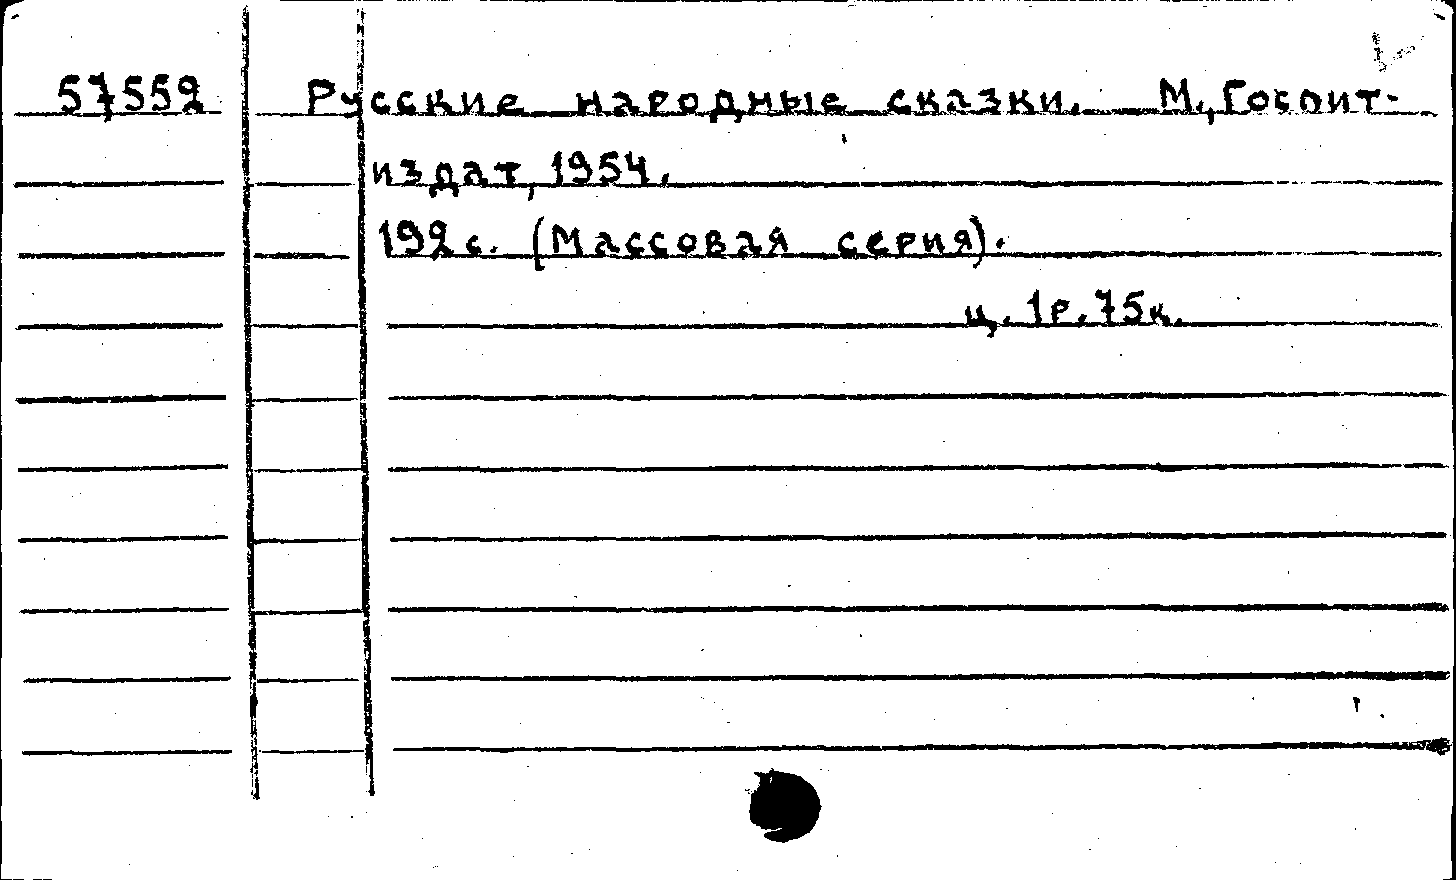 57552 Русские народные сказки. М., Гослит-
издат, 1954.
192 с. (Массовая серия).
ц. 1р. 75к.